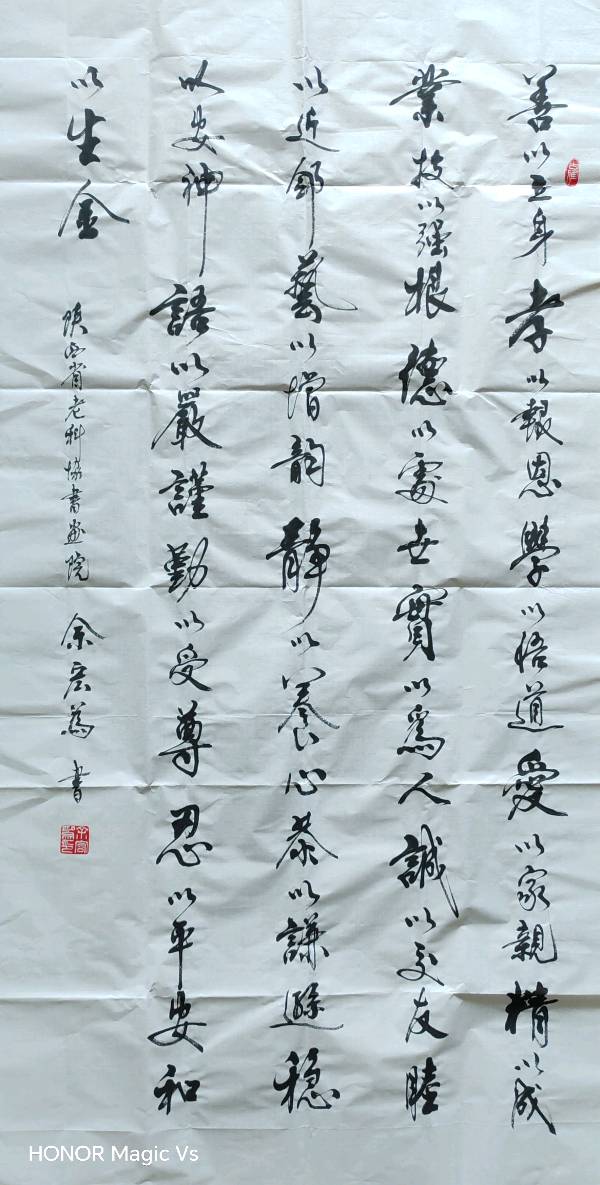 善以立身孝以報恩學以悟道愛以家親精以成
業技以强根德以處世實以爲人誠以交友睦
以近鄰藝以增韵靜以養心恭以謙遜穩
以安神語以嚴謹勤以受尊忍以平安和
以生金
陕西省老科協書画院 余宏為 書
HONOR Magic Vs